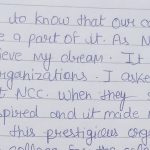 to know that our co
e a part of it. As N
ieve my dream. It
organizations. I aske
t NCC. When they s
spired and it made
this prestigious org